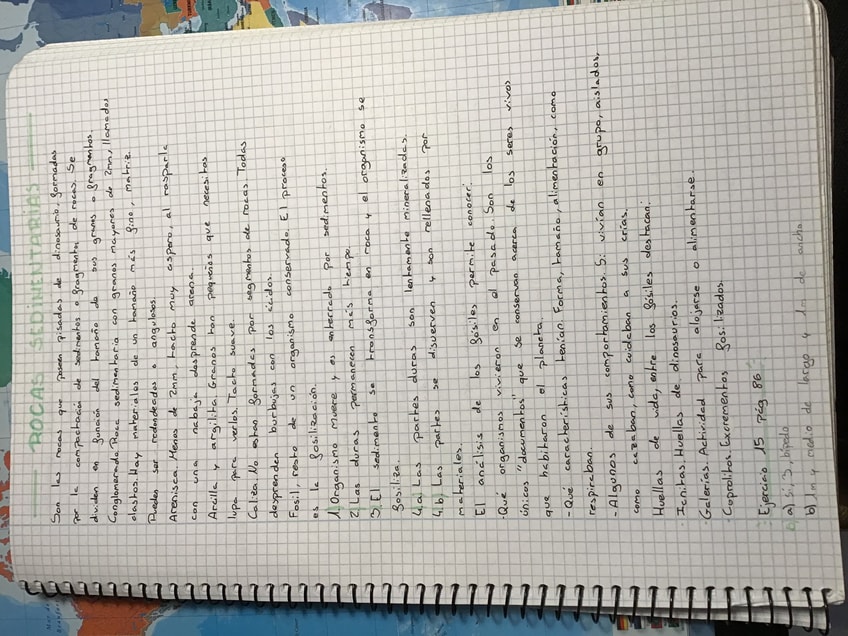 ROCAS SEDIMENTARIAS
Son las rocas que poseen pisadas de dinosaurio, formadas
por la compactación de sedimentos o fragmentos de rocas. Se
dividen en función del tamaño de sus granos o fragmentos.
Conglomerado. Roca sedimentaria con granos mayores de 2mm, llamados
clastos. Hay materiales de un tamaño más fino, matriz.
Pueden ser redondeados o angulosos.
Arenisca. Menos de 2mm, tacto muy áspero, al rasparla
con una nabaja desprende arena.
Arcilla y argilita. Granos tan pequeños que necesitas
lupa para verlos. Tacto suave.
Caliza. No estan formadas por segmentos de rocas. Todas
desprenden burbujas con los ácidos.
Fosil, resto de un organismo conservado. El proceso
es la fosilización.
1) Organismo muere y es enterrado por sedimentos.
2. Las duras permanecen más tiempo.
3. El sedimento se transforma en roca y el organismo se
fosiliza.
4.a) Las partes duras son lentamente mineralizadas.
4.b. Las partes se disuerven y son rellenados por
materiales.
El análisis de los fósiles permite conocer:
-Qué organismos vivieron en el pasado. Son los
únicos "documentos" que se conservan acerca de los seres vivos
que habitaron el planeta.
-Qué características tenían. Forma, tamaño, alimentación, como
respiraban.
-Algunos de sus comportamientos. Si vivían en grupo, aislados,
como cazaban, como cuidaban a sus crías.
Huellas de vida, entre los fósiles destacan:
·Icnitas. Huellas de dinosaurios.
·Galerías. Actividad para alojarse o alimentarse.
·Coprolitos. Excrementos fosilizados.
Ejercicio 15 pág 86
a) si 3, bípedo
b) 1m y medio de largo y 1m de ancho
Mar de